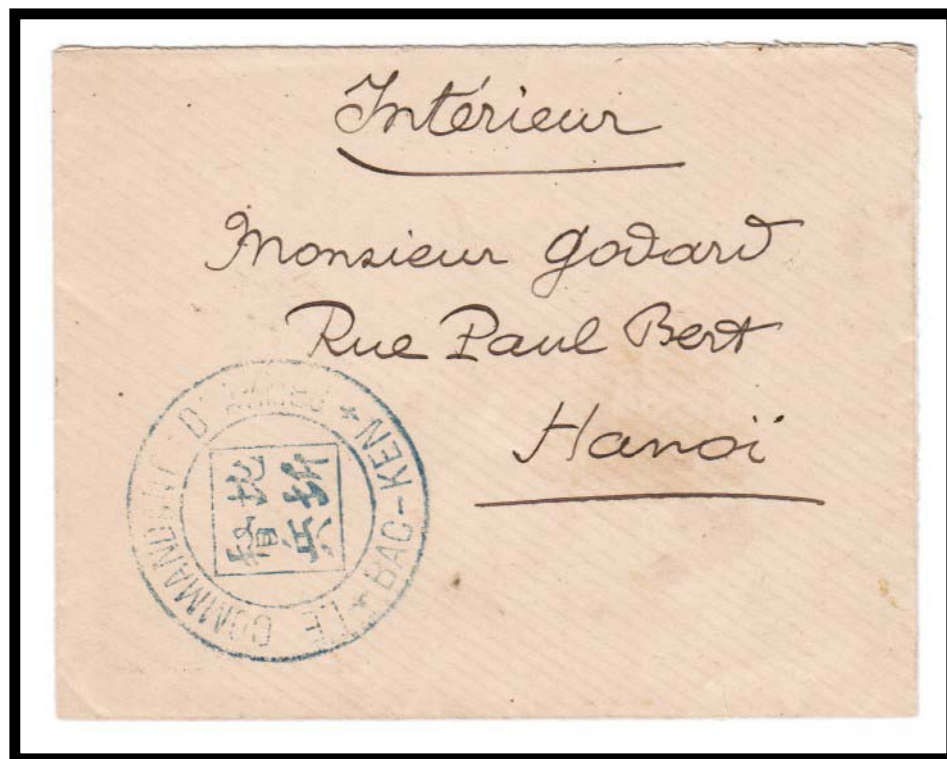 Intérieur
Monsieur Godard
Rue Paul Bert
Hanoï
LE COMMANDANT D'ARMES * BAC-KEN *